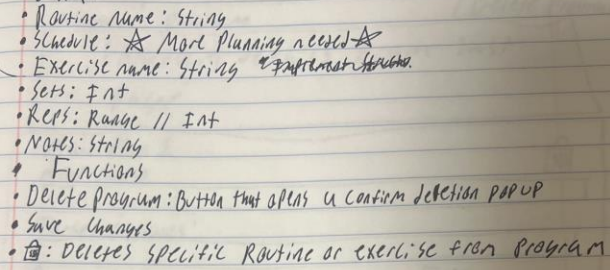 • Routine name: String
• Schedule: ☆ More Planning needed ☆
• Exercise name: String
• Sets: Int
• Reps: Range // Int
• Notes: String
• Functions
• Delete program: Button that opens a confirm deletion pop up
• Save Changes
• 🗑: Deletes specific Routine or exercise from program